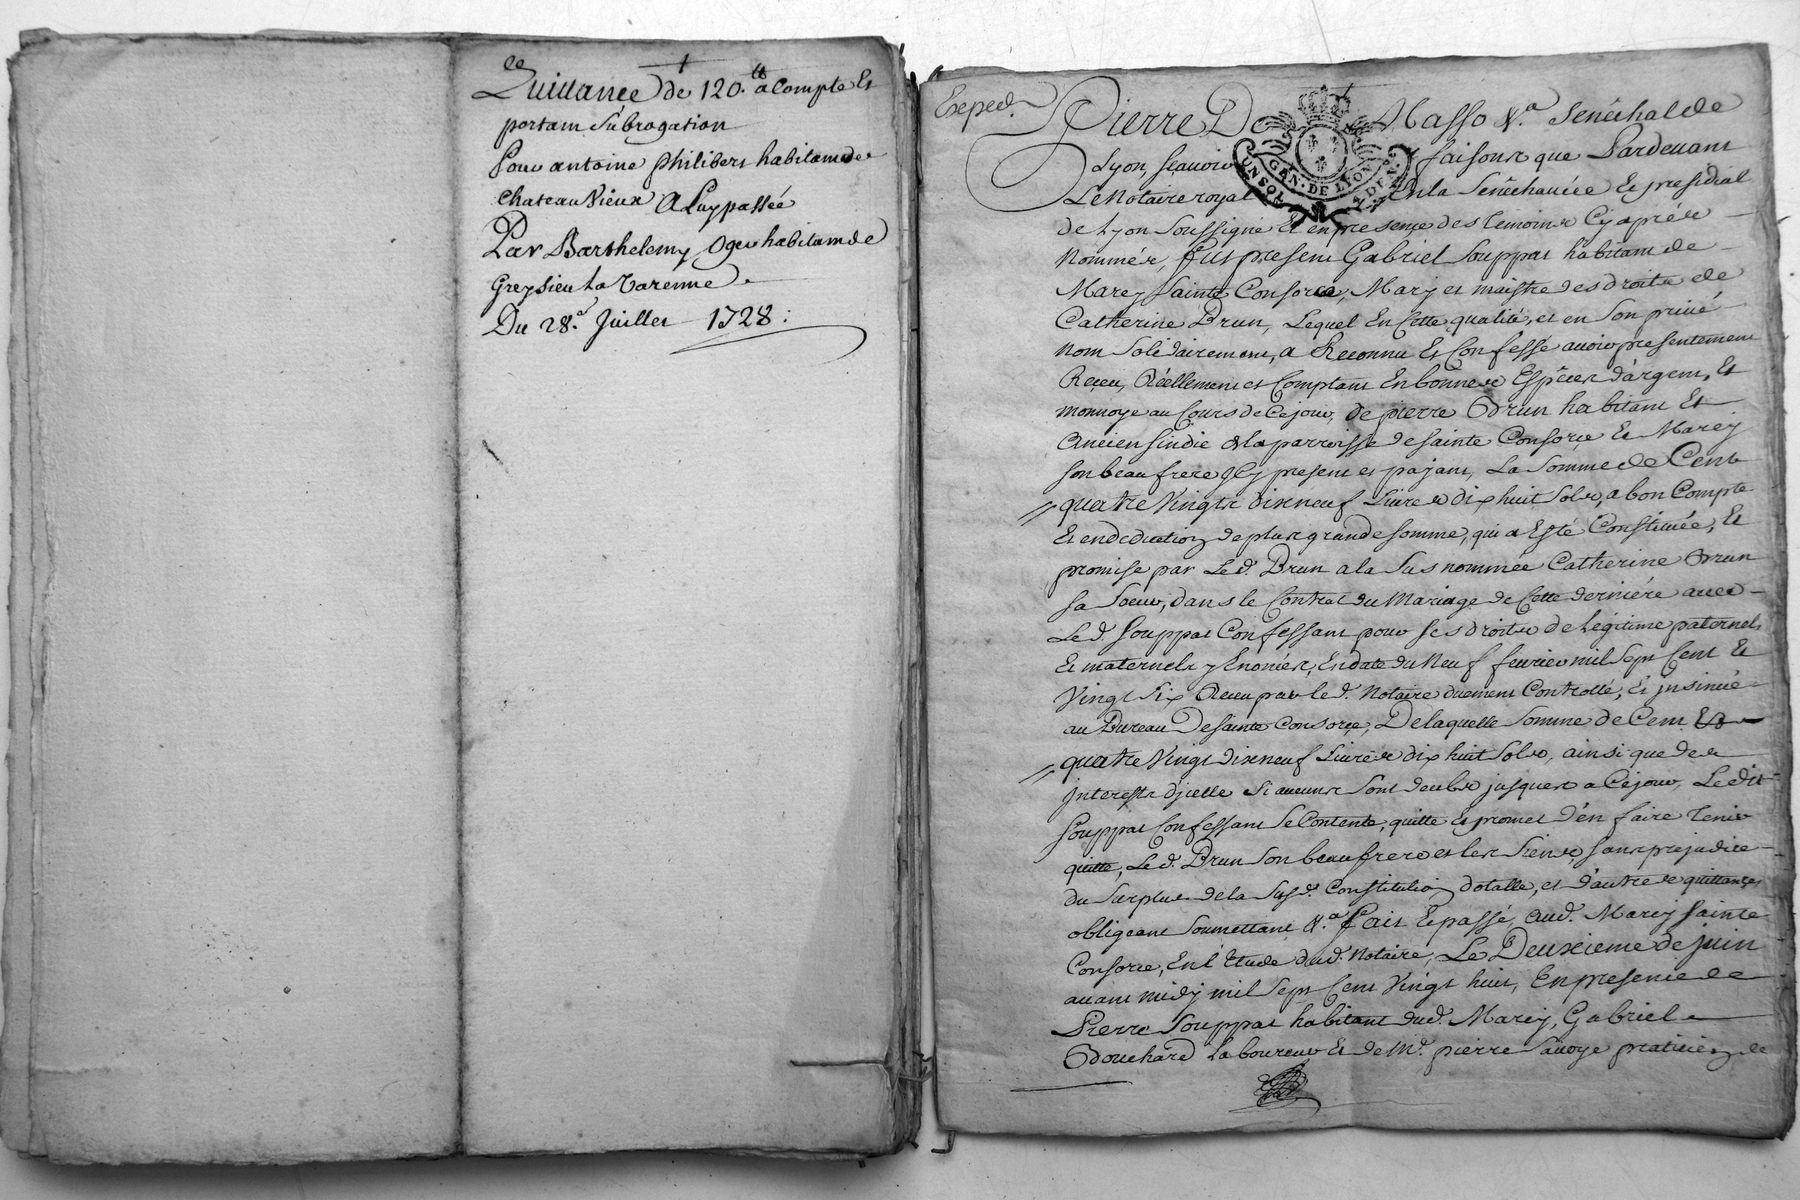 Quittance de 120.tt a Compte Et
portant Subrogation
Pour antoine philibert habitant de
chateau Vieux A Luy passée
Par Barthelemy Oger habitant de
Greysieu La Varenne.
Du 28.e Juillet 1728:
Exped.
Pierre De Masso &.a Senéchal de
Lyon scavoir faisons que Pardevant
Le Notaire royal En la Senéchaucée Et presidial
GEN. DE LYON
UN SOL
de Lyon Soussigné Et en presence des temoins Cy aprés
Nommés, fut present Gabriel Souppat habitant de
Marcy Sainte Consorce, Mary et maistre des droits de
Catherine Brun, Lequel En Cette qualité, et en Son privé
Nom Solidairement, a Reconnu Et Confessé avoir presentement
Receu, Réellement et Comptant En bonnes Espéces d'argent, Et
monnoye au Cours de Ce jour, de pierre Brun habitant Et
Ancien Sindic de la parroisse de Sainte Consorce Et Marcy
Son beau frere Icy present et payant, La Somme de Cent
quatre Vingts dixneuf Livres dix huit Sols, a bon Compte
Et en deduction de plus grande Somme, qui a Esté Constituée, Et
promise par Led. Brun a la Sus nommée Catherine Brun
Sa Soeur, dans le Contrat du Mariage de Cette derniére avec
Led. Souppat Confessant pour Ses droits de Légitime paternels
Et maternels y Enoncés, En date du Neuf fevrier mil Sept Cent Et
Vingt Six Receu par led. Notaire duement Controllé, Et insinué
au Bureau De Sainte Consorce, De laquelle Somme de Cent
quatre Vingt dixneuf Livres dix huit Sols, ainsi que des
Interests d'icelle Si aucuns Sont deubs jusques a Ce jour, Le dit
Souppat Confessant Se Contente, quitte et promet d'en faire Tenir
quitte, Led. Brun Son beau frere et les Siens Sans prejudice
du Surplus de la Susd. Constitution dotalle, et d'autres quittances
obligeant Soumettant &.a fait Et passé, aud. Marcy Sainte
Consorce, En l'Etude dud. Notaire, Le Deuxieme de juin
avant midy mil Sept Cent Vingt huit, En presence de
Pierre Souppat habitant dud. Marcy, Gabriel
Bouchard Laboureur Et de M.e pierre Savoye praticien de